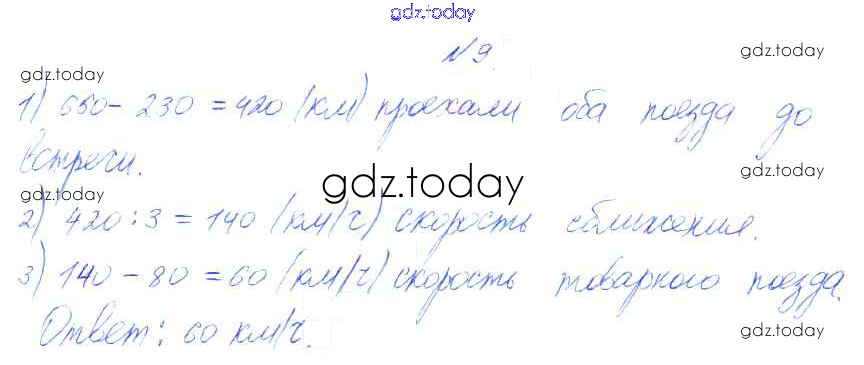 gdz.today
№ 9.
gdz.today
gdz.today
1) 650 - 230 = 420 (км) проехали оба поезда до
встречи.
gdz.today
gdz.today
gdz.today
2) 420 : 3 = 140 (км/ч) скорость сближения.
3) 140 - 80 = 60 (км/ч) скорость товарного поезда.
Ответ: 60 км/ч.
gdz.today
gdz.today